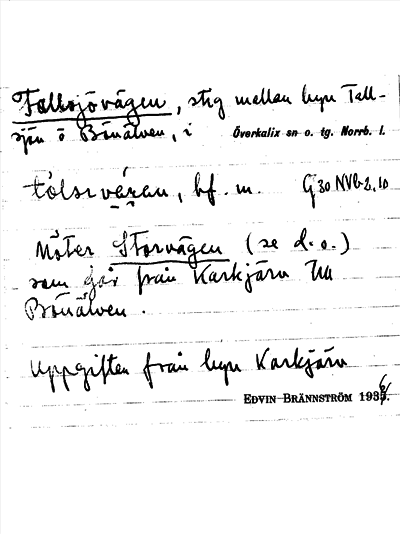 Tallsjövägen, stig mellan byn Tall-
sjön o Bönälven, i Överkalix sn o. tg. Norrb. l.
bf. m. G 30 NVb 2, 10
Möter Storvägen (se d.o.)
som går från Karkjärv till
Bönälven.
Uppgiften från byn Karkjärv
EDVIN BRÄNNSTRÖM 1936.